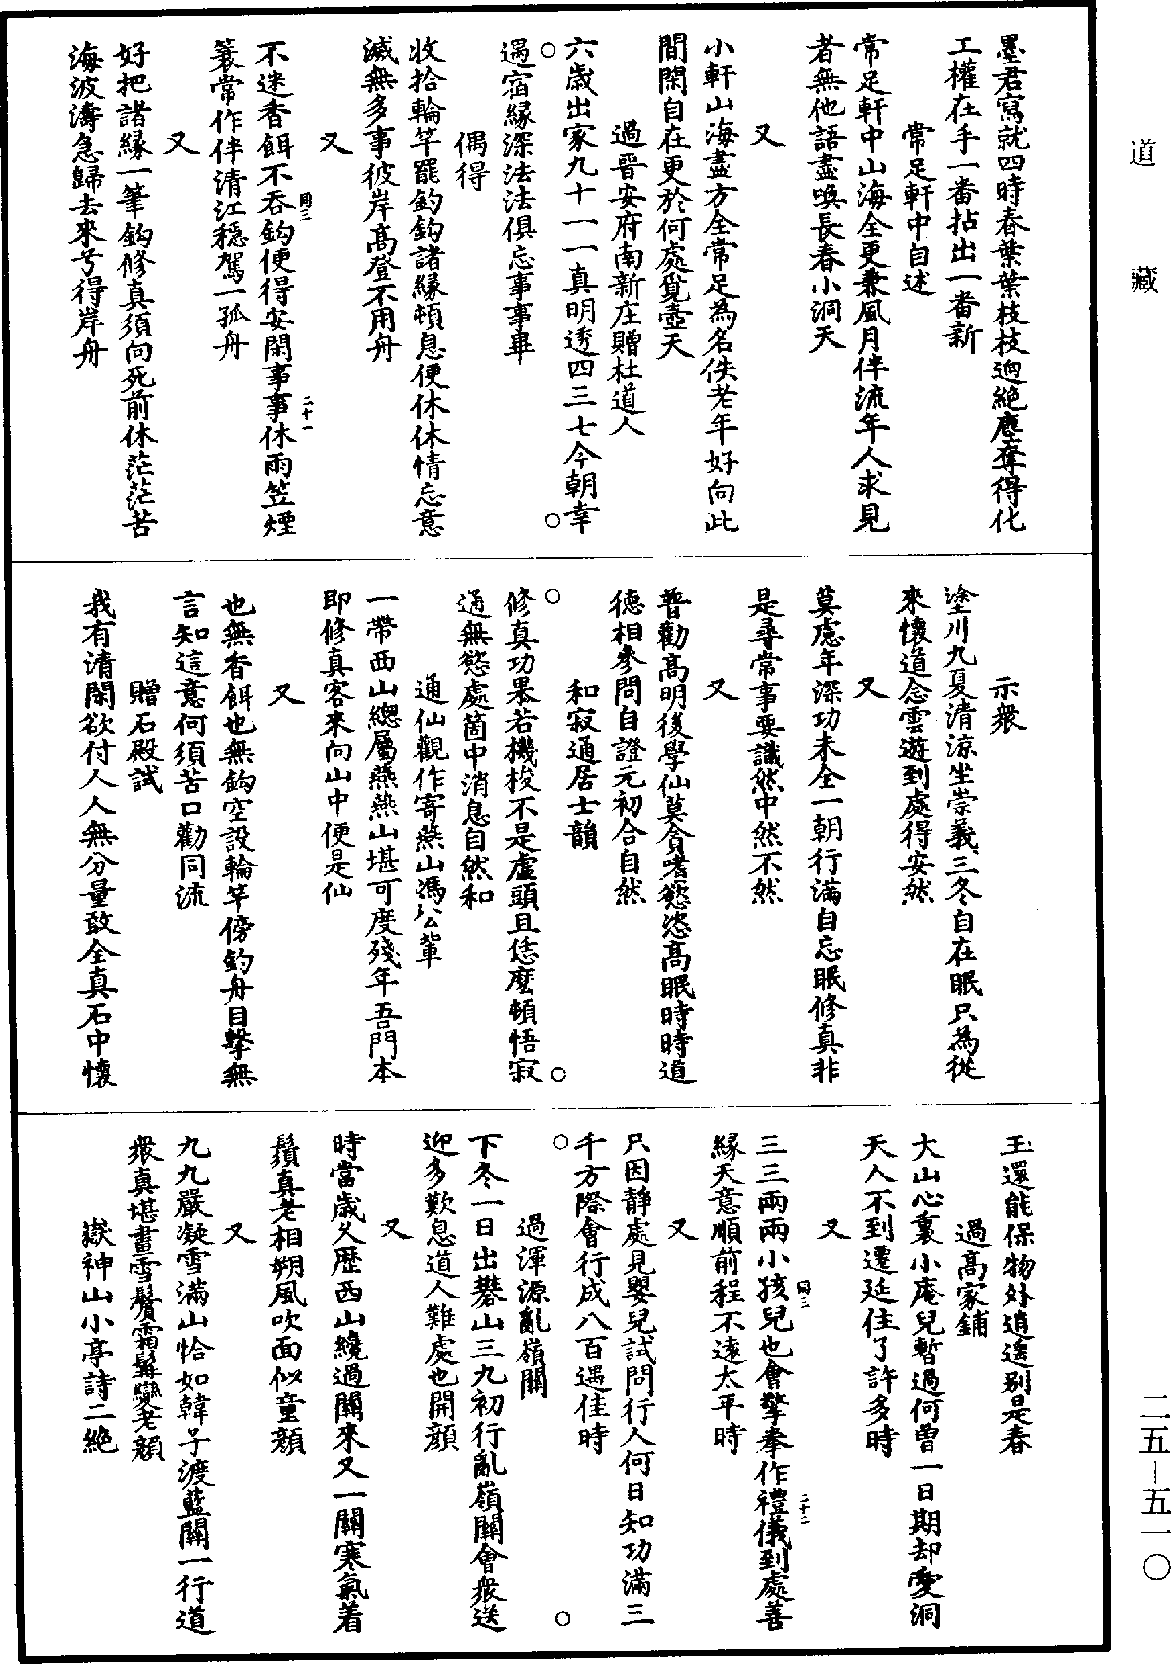 道藏
墨君寫就四時春葉葉枝枝迥絕塵奪得化
工權在手一番拈出一番新
常足軒中自述
常足軒中山海全更兼風月伴流年人求見
者無他語盡喚長春小洞天
又
小軒山海盡方全常足為名佚老年好向此
間閑自在更於何處覓壺天
過晉安府南新庄贈杜道人
六歲出家九十一一真明透四三七今朝幸
遇宿緣深法法俱忘事事畢
偶得
收拾輪竿罷釣鈎諸緣頓息便休休情忘意
滅無多事彼岸高登不用舟
又
不迷香餌不吞鈎便得安閑事事休雨笠煙
簑常作伴清江穩駕一孤舟
又
好把諸緣一筆鈎修真須向死前休茫茫苦
海波濤急歸去來兮得岸舟
示衆
塗川九夏清凉坐崇義三冬自在眠只為從
來懷道念雲遊到處得安然
又
莫慮年深功未全一朝行滿自忘眠修真非
是尋常事要識然中然不然
又
普勸高明後學仙莫貪嗜慾恣高眠時時道
德相參問自證元初合自然
和寂通居士韻
修真功果若機梭不是虛頭且恁麼頓悟寂
通無慾處箇中消息自然和
通仙觀作寄燕山馮公輩
一帶西山總屬燕燕山堪可度殘年吾門本
即修真客來向山中便是仙
又
也無香餌也無鈎空設輪竿傍釣舟目擊無
言知這意何須苦口勸同流
贈石殿試
我有清閑欲付人人無分量敢全真石中懷
玉還能保物外逍遙别是春
過高家鋪
大山心裏小庵兒暫過何曾一日期却愛洞
天人不到遷延住了許多時
又
三三兩兩小孩兒也會擎拳作禮儀到處善
緣天意順前程不遠太平時
又
只因静處見嬰兒試問行人何日知功滿三
千方際會行成八百遇佳時
過渾源亂嶺關
下冬一日出礬山三九初行亂嶺關會衆送
迎多歎息道人難處也開顔
又
時當歲久歷西山纔過關來又一關寒氣着
鬚真老相朔風吹面似童顔
又
九九嚴凝雪滿山恰如韓子渡藍關一行道
衆真堪畫雪鬢霜髯變老顔
嶽神山小亭詩二絶
同三
二十一
同三
二十二
二五—五一〇